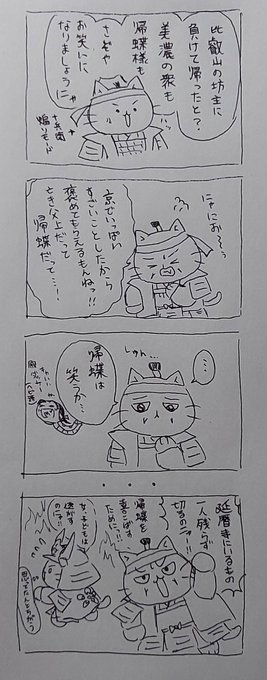 比叡山の坊主に
負けて帰ったと？
美濃の衆も
帰蝶様も
さぞや
お笑いに
なりましょうにゃ
にゃにお〜っ
京でいっぱい
すごいことしたから
褒めてもらえるもんねっ!!
とき父上だって
帰蝶だって…!
…
しゅん…
帰蝶は
笑うか…
延暦寺にいるもの
一人残らず
切るのニャ!!
帰蝶を
喜こばす
ために!!
女、子どもは
逃がす
のニャ!!